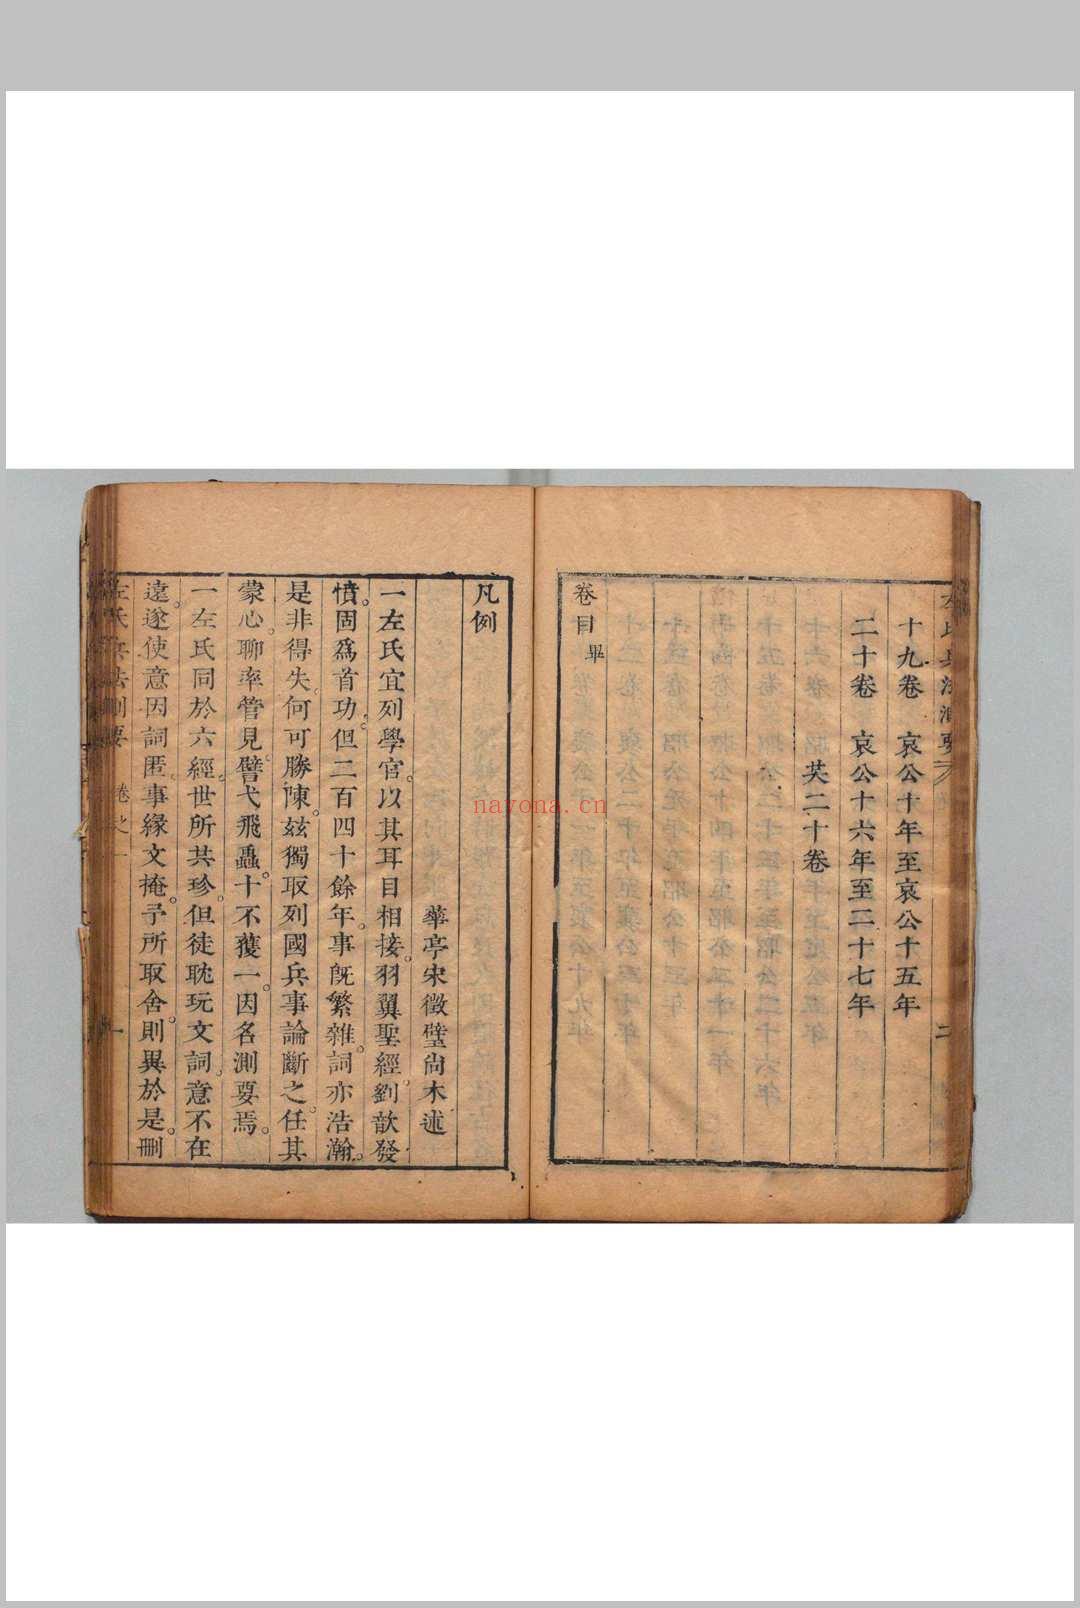 十九卷　哀公十年至哀公十五年
二十卷　哀公十六年至二十七年
共二十卷
卷目畢
凡例
華亭宋徵璧尚木述
一左氏宜列學官。以其耳目相接。羽翼聖經。劉歆發
憤。固爲首功。但二百四十餘年。事旣繁雜。詞亦浩瀚。
是非得失。何可勝陳。兹獨取列國兵事論斷之。任其
蒙心。聊率管見。譬弋飛蟲。十不獲一。因名測要焉。
一左氏同於六經。世所共珍。但徒耽玩文詞。意不在
遠。遂使意因詞匿。事緣文掩。予所取舍。則異於是。刪
左氏兵法測要　卷之　一
nayona.cn